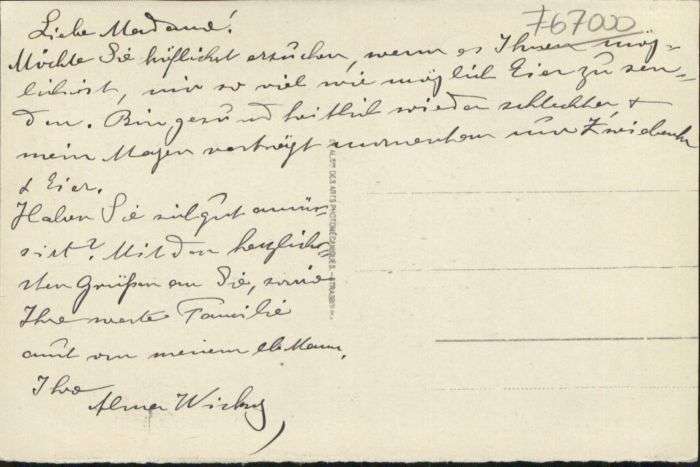 767000
Liebe Madame!
Möchte Sie höflichst ersuchen, wenn es Ihnen mög-
lich ist, mir so viel wie möglich Eier zu sen-
den. Bin gesundheitlich wieder schlechter, &
mein Magen verträgt momentan nur Zwieback
& Eier.
Haben Sie sich gut amü-
siert? Mit den herzlich-
sten Grüßen an Sie, sowie
Ihre werte Familie
auch von meinem lb. Mann.
Ihre
Alma
DES ARTS PHOTOMÉCANIQUES - STRASBG